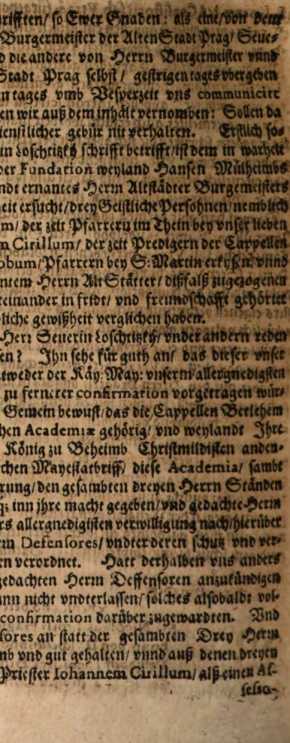 rifften/ so Ewer Gnaden: als eine/von dem
Burgermeister der Alten Stadt Prag/ Seue-
d die andere von Herrn Burgermeister vnnd
Stadt Prag selbst/ gestrigen tages vbergeben
n tages vmb Vesperzeit vns communicirt
en wir auß dem inhalt vernomben: Sollen da
ienstlicher gebür nit verhalten. Erstlich so-
in Loschtizky schrifft betrifft/ ist dem in warheit
der Fundation weyland Hansen Mülheimbs
ndt ernantes Herrn Altstädter Burgemeisters
eit ersucht/ drey Geistliche Persohnen/ nemblich
m/ der zeit Pfarrern im Thein bey vnser lieben
m Cirillum/ der zeit Predigern der Cappellen
obum/ Pfarrern bey S: Martin vnnd
Herrn Alt Stätter/ dißfalß zugezogenen
einander in fridt/ vnd freundschafft gehörter
liche gewißheit verglichen haben.
Herr Seuerin Loschtizky/ vnder andern reden
en? Ihn sehe für guth an/ das dieser vnser
tweder der Käy: May: vnserm allergnedigsten
zu fernerer confirmation vorgetragen wür-
Gemein bewust/ das die Cappellen Betlehem
hen Academiæ gehörig/ vnd weylandt Ihre
König zu Beheimb Christmildisten anden-
chen Mayestatbriff/ diese Academia/ sambt
rung/ den gesambten dreyen Herrn Ständen
inn jhre macht gegeben/ vnd gedachte Herrn
rs allergnedigsten verwilligung nach/ hierüber
rn Defensores/ vndter deren schutz vnd ver-
rn verordnet. Hatt derhalben vns anders
gedachten Herrn Deffensoren anzukündigen
ann nicht vndterlassen/ solches alsobaldt vol-
confirmation darüber zugewardten. Vnd
sores an statt der gesambten Drey Herrn
mb vnd gut gehalten/ vnnd auß denen dreyen
Priester Iohannem Cirillum/ alß einen As-
sesso-